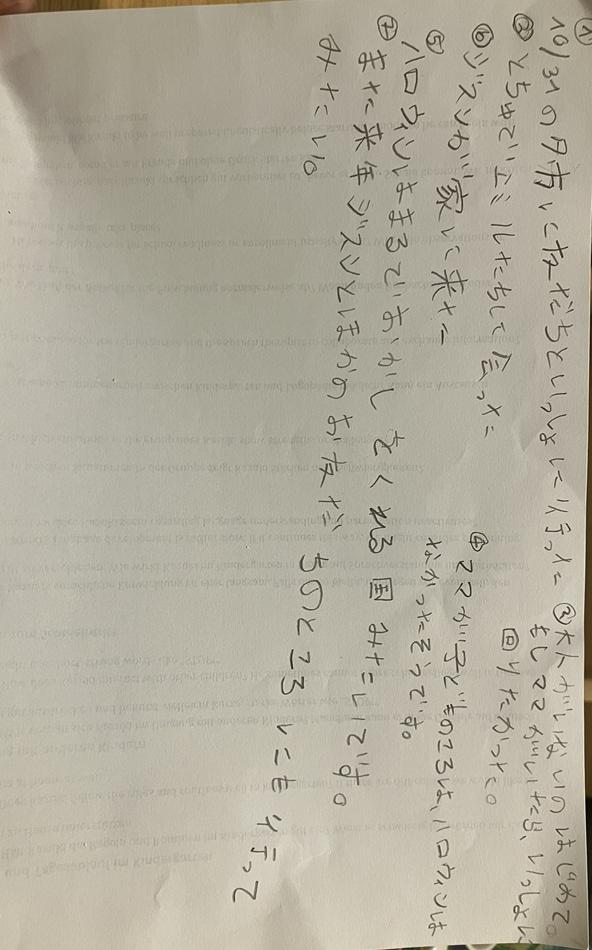 ① 10/31の夕方に友だちといっしょに行った ③大人がいないのはじめて。
もしママがいたら、いっしょに
回りたかった。
② とちゅでエミルたちに会った
⑥ ジスンが家に来た
④ ママが子どものころは、ハロウィンは
なかったそうです。
⑤ ハロウィンはまるでおかしをくれる国みたいです。
⑦ また来年ジスンとほかのお友だちのところにも行って
みたい。